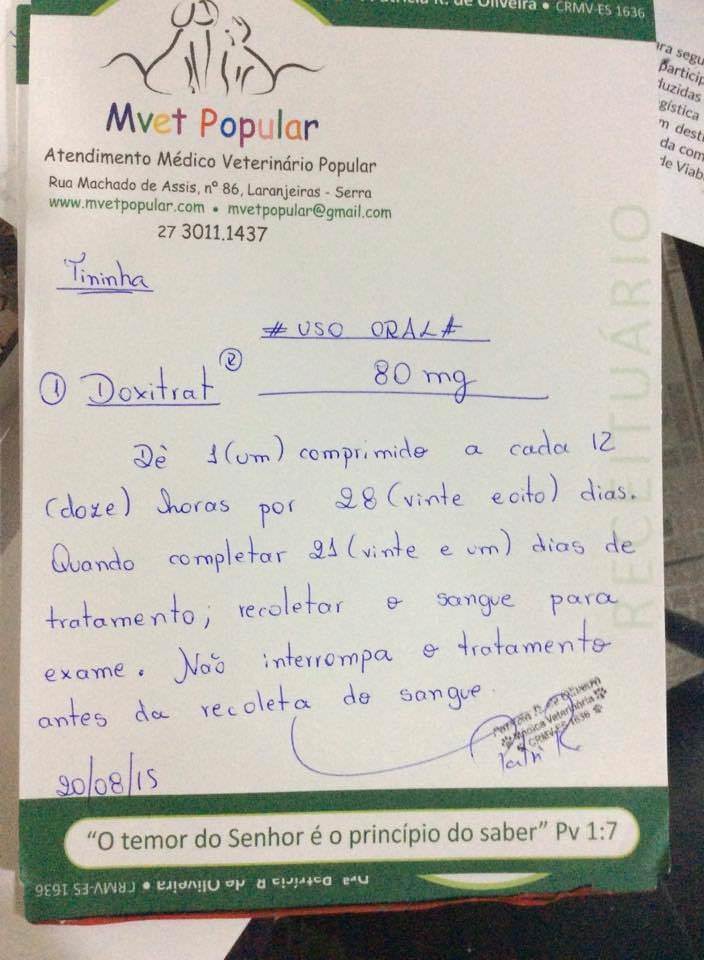 R. de Oliveira • CRMV-ES 1636
Mvet Popular
Atendimento Médico Veterinário Popular
Rua Machado de Assis, nº 86, Laranjeiras - Serra
www.mvetpopular.com • mvetpopular@gmail.com
27 3011.1437
Tininha
# USO ORAL #
① Doxitrat ® 80 mg
Dê 1 (um) comprimido a cada 12
(doze) horas por 28 (vinte e oito) dias.
Quando completar 21 (vinte e um) dias de
tratamento, recoletar o sangue para
exame. Não interrompa o tratamento
antes da recoleta do sangue.
Médica Veterinária
CRMV-ES 1636
20/08/15
RECEITUÁRIO
"O temor do Senhor é o princípio do saber" Pv 1:7
Drª Patricia R de Oliveira • CRMV-ES 1636
ara segu
particip
duzidas
gística
m desti
da com
de Viab